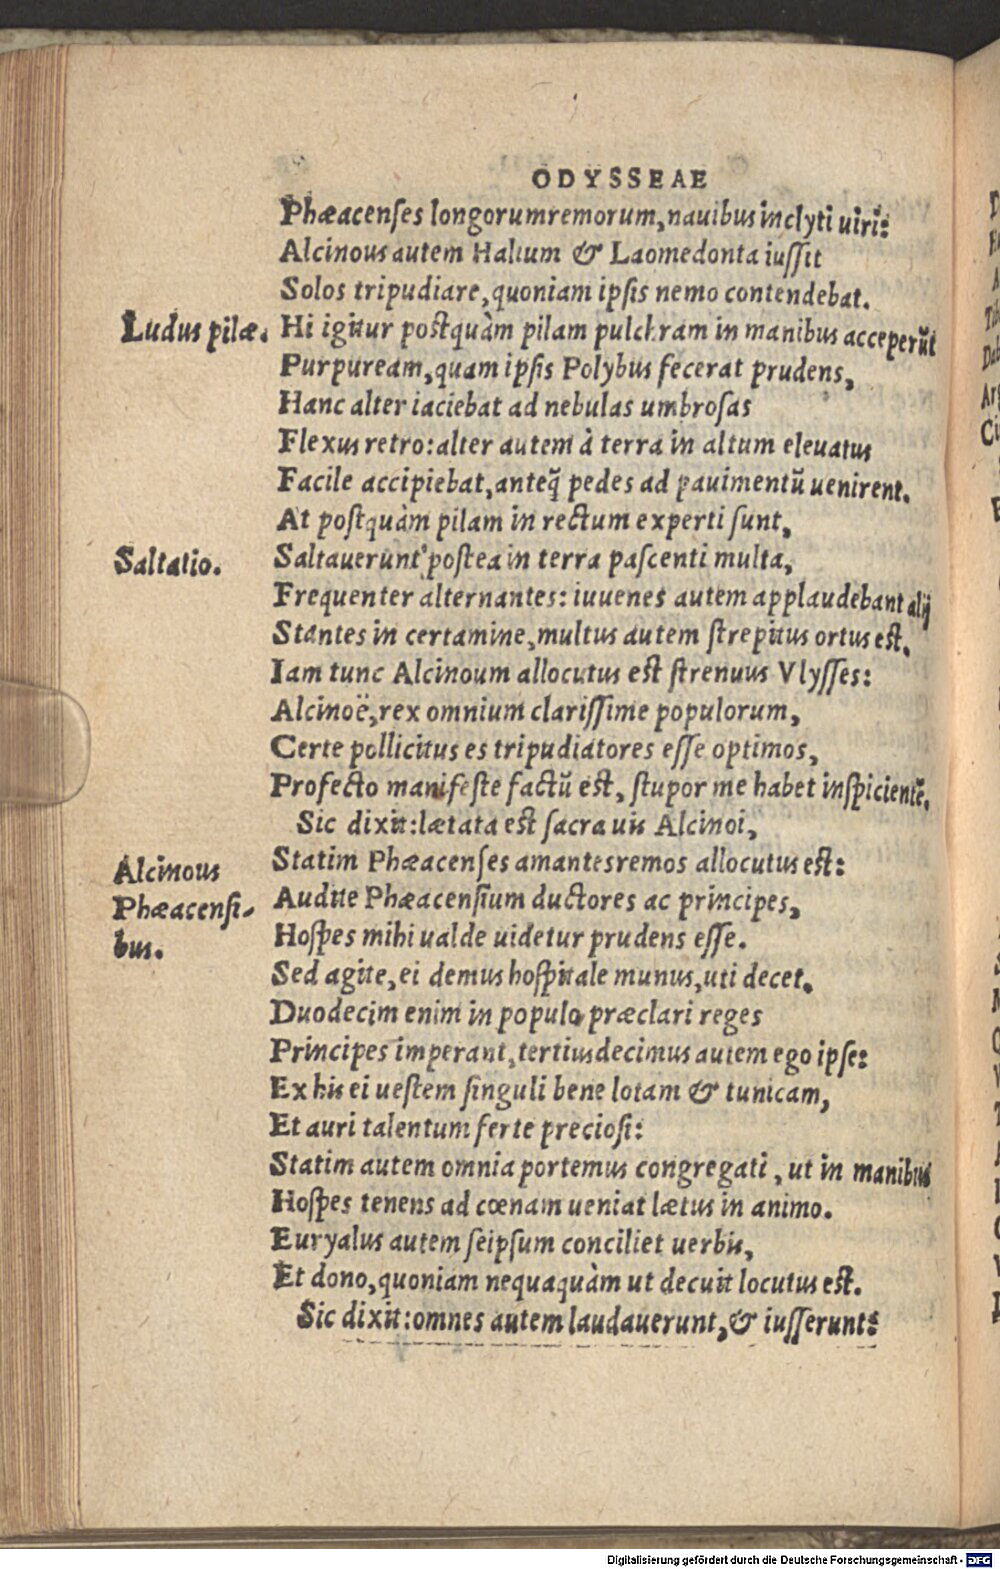 ODYSSEAE
Phæacenses longorumremorum, nauibus inclyti uiri:
Alcinous autem Halium & Laomedonta iussit
Solos tripudiare, quoniam ipsis nemo contendebat.
Ludus pilæ. Hi igitur postquàm pilam pulchram in manibus acceperūt
Purpuream, quam ipsis Polybus fecerat prudens,
Hanc alter iaciebat ad nebulas umbrosas
Flexus retro: alter autem à terra in altum eleuatus
Facile accipiebat, anteq̃ pedes ad pauimentū uenirent.
At postquàm pilam in rectum experti sunt,
Saltatio. Saltauerunt postea in terra pascenti multa,
Frequenter alternantes: iuuenes autem applaudebant alij
Stantes in certamine, multus autem strepitus ortus est.
Iam tunc Alcinoum allocutus est strenuus Vlysses:
Alcinoë, rex omnium clarissime populorum,
Certe pollicitus es tripudiatores esse optimos,
Profecto manifeste factū est, stupor me habet inspicientē.
Sic dixit: lætata est sacra uis Alcinoi,
Alcinous Statim Phæacenses amantesremos allocutus est:
Phæacensi- Audite Phæacensium ductores ac principes,
bus. Hospes mihi ualde uidetur prudens esse.
Sed agite, ei demus hospitale munus, uti decet.
Duodecim enim in populo præclari reges
Principes imperant, tertiusdecimus autem ego ipse:
Ex his ei uestem singuli bene lotam & tunicam,
Et auri talentum ferte preciosi:
Statim autem omnia portemus congregati, ut in manibus
Hospes tenens ad cœnam ueniat lætus in animo.
Euryalus autem seipsum conciliet uerbis,
Et dono, quoniam nequaquàm ut decuit locutus est.
Sic dixit: omnes autem laudauerunt, & iusserunt:
Digitalisierung gefördert durch die Deutsche Forschungsgemeinschaft - DFG